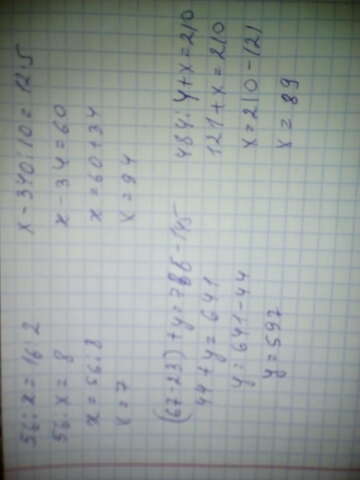 56:x=16:2
56:x=8
x=56:8
x=7
x-340:10=12·5
x-34=60
x=60+34
x=94
(67-23)+y=786-145
44+y=641
y=641-44
y=597
484:4+x=210
121+x=210
x=210-121
x=89